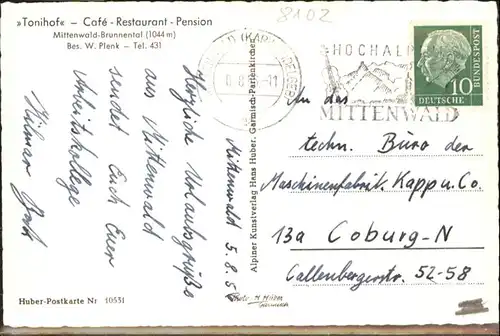 8102
»Tonihof« – Café - Restaurant - Pension
Mittenwald-Brunnental (1044 m)
Bes. W. Plenk – Tel. 431
HOCHALP
MITTENWALD
10
DEUTSCHE
BUNDESPOST
Mittenwald 5.8.5
Herzliche Urlaubsgrüße
aus Mittenwald
sendet Euch Euer
Arbeitskollege
Hilmar
An das
techn. Büro der
Maschinenfabrik Kapp u. Co.
13a Coburg-N
Callenbergerstr. 52-58
Alpiner Kunstverlag Hans Huber, Garmisch-Partenkirchen
Photo H. Huber
Garmisch
Huber-Postkarte Nr 10531